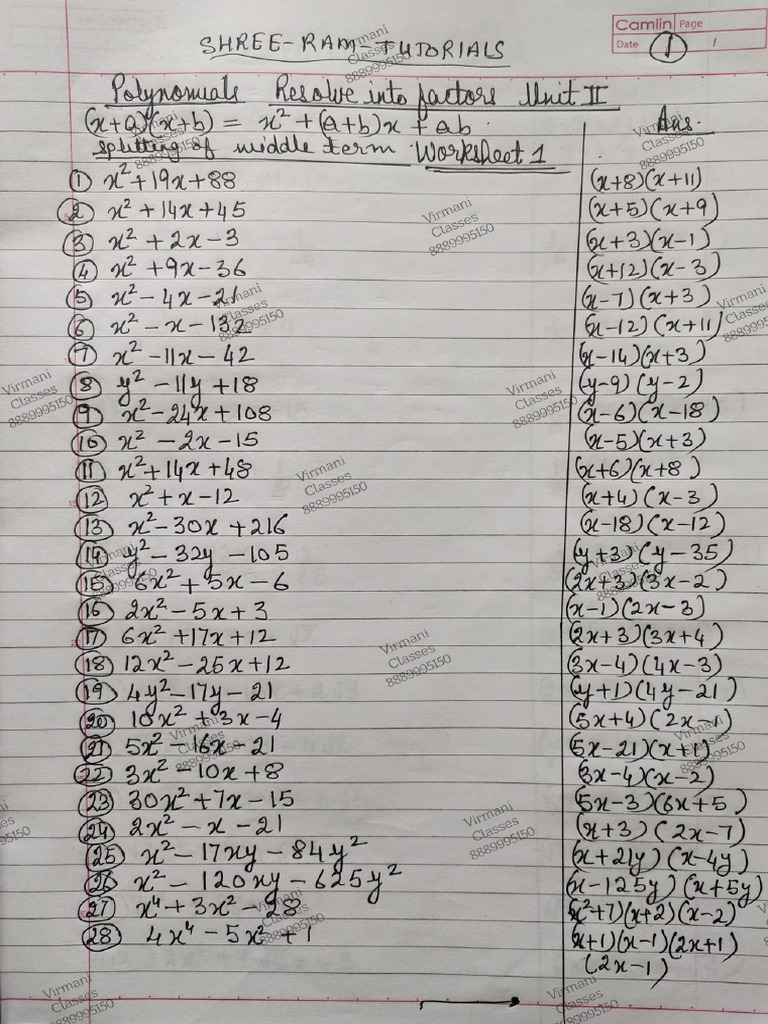 SHREE-RAM-TUTORIALS
Camlin Page
Date 1 1
Polynomials Resolve into factors Unit II
(x+a)(x+b) = x² + (a+b)x + ab Ans.
splitting of middle term Worksheet 1
① x²+19x+88 (x+8)(x+11)
② x²+14x+45 (x+5)(x+9)
③ x² + 2x - 3 (x+3)(x-1)
④ x² +9x-36 (x+12)(x-3)
⑤ x² - 4x - 21 (x-7)(x+3)
⑥ x² - x - 132 (x-12)(x+11)
⑦ x² -11x - 42 (x-14)(x+3)
⑧ y² -11y +18 (y-9)(y-2)
⑨ x²-24x+108 (x-6)(x-18)
⑩ x² -2x-15 (x-5)(x+3)
⑪ x²+14x+48 (x+6)(x+8)
⑫ x²+x-12 (x+4)(x-3)
⑬ x²-30x+216 (x-18)(x-12)
⑭ y²-32y-105 (y+3)(y-35)
⑮ 6x²+5x-6 (2x+3)(3x-2)
⑯ 2x²-5x+3 (x-1)(2x-3)
⑰ 6x²+17x+12 (2x+3)(3x+4)
⑱ 12x²-25x+12 (3x-4)(4x-3)
⑲ 4y²-17y-21 (y+1)(4y-21)
⑳ 10x²+3x-4 (5x+4)(2x-1)
㉑ 5x²-16x-21 (5x-21)(x+1)
㉒ 3x²-10x+8 (3x-4)(x-2)
㉓ 30x²+7x-15 (5x-3)(6x+5)
㉔ 2x²-x-21 (x+3)(2x-7)
㉕ x²-17xy-84y² (x+21y)(x-4y)
㉖ x²-120xy-625y² (x-125y)(x+5y)
㉗ x⁴+3x²-28 (x²+7)(x+2)(x-2)
㉘ 4x⁴-5x²+1 (x+1)(x-1)(2x+1)
(2x-1)
Virmani
Classes
8889995150